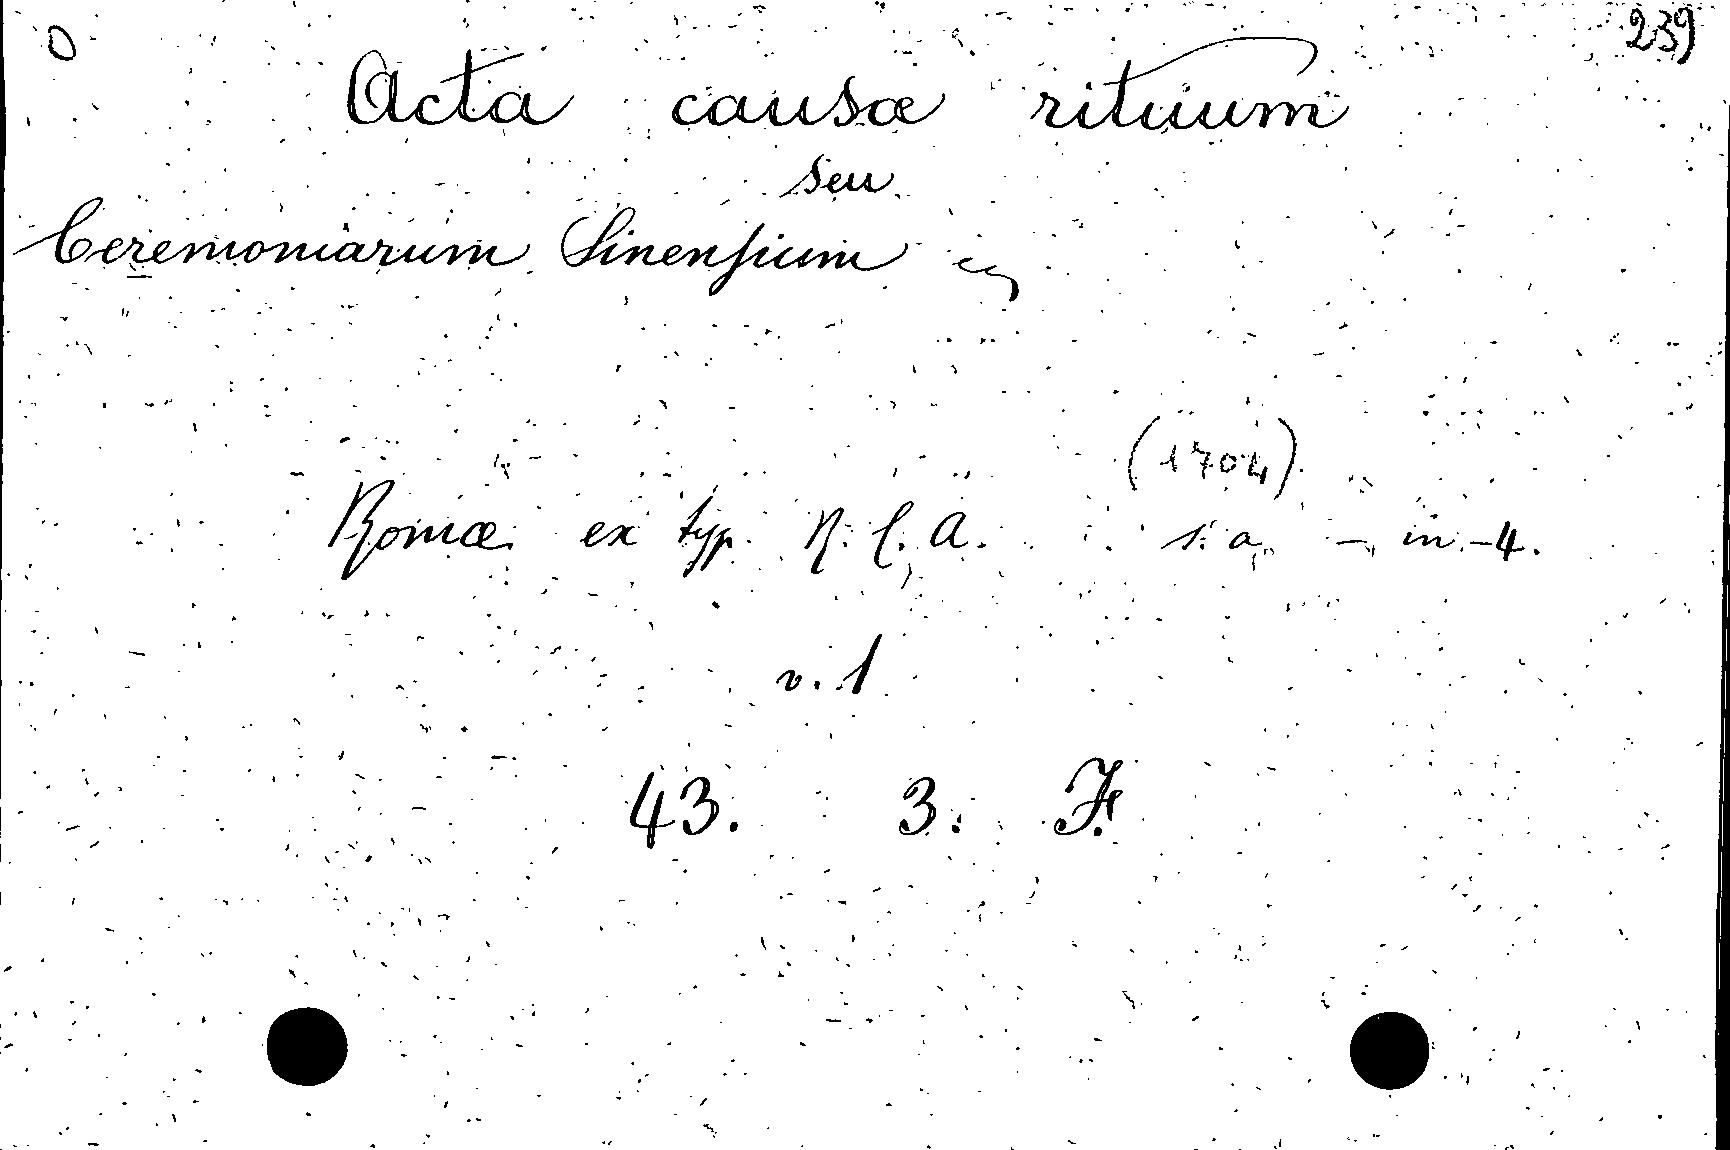 0 239
Acta causæ rituum
seu
Ceremoniarum Sinensium
(1704)
Romæ ex typ. R. C. A. s. a. - in-4.
v. 1
43. 3. F.